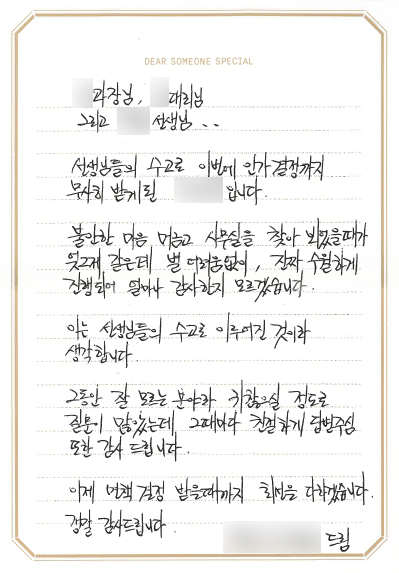 DEAR SOMEONE SPECIAL
과장님, 대리님
그리고 선생님 ..
선생님들의 수고로 이번에 인가결정까지
무사히 받게된 입니다.
불안한 마음 머금고 사무실을 찾아 뵈었을때가
엊그제 같은데 별 어려움없이, 진짜 수월하게
진행되어 얼마나 감사한지 모르겠습니다.
이는 선생님들의 수고로 이루어진 것이라
생각합니다.
그동안 잘 모르는 분야라 귀찮으실 정도로
질문이 많았는데 그때마다 친절하게 답변주심
또한 감사 드립니다.
이제 면책 결정 받을때까지 최선을 다하겠습니다.
정말 감사드립니다.
드림